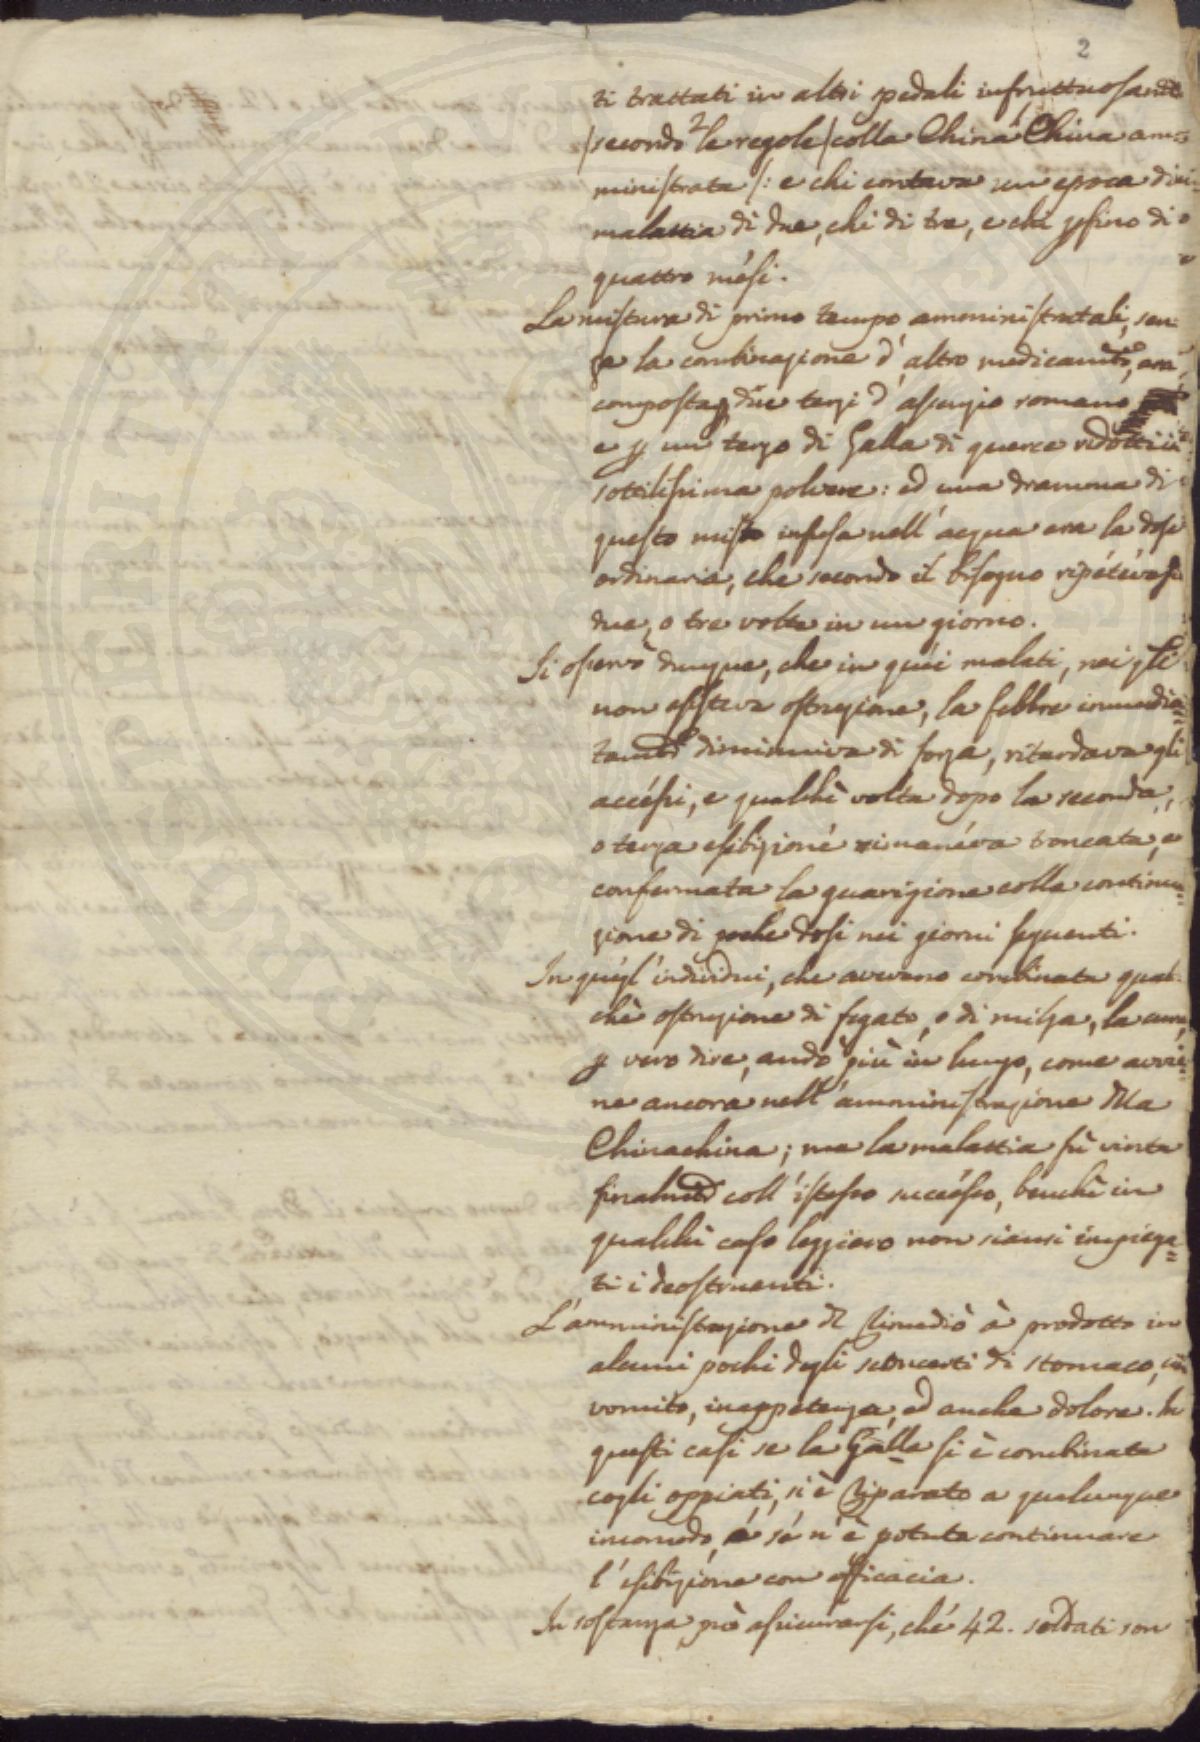 2
ti trattati in altri spedali infruttuosam.te
/secondo le regole/ colla China China am=
ministrata /: e chi contava un epoca di
malattia di due, chi di tre, e chi p fino di
quattro mesi.
La mistura di primo tempo amministratali, sen:
za la combinazione d'altro medicam.to, era
composta p due terzi d'assenzio romano
e p un terzo di Galla di querce ridotti in
sottilissima polvere: ed una dramma di
questo misto infusa nell'acqua era la dose
ordinaria, che secondo il bisogno ripetevasi
due, o tre volte in un giorno.
Si osservò dunque, che in quei malati, nei q.li
non esisteva ostruzione, la febbre immedia=
tam.te diminuiva di forza, ritardava gli
accessi, e qualchè volta dopo la seconda,
o terza esibizione rimaneva troncata, e
confermata la guarigione colla continua=
zione di poche dosi nei giorni seguenti.
In quegl'individui, che avevano combinata qual:
chè ostruzione di fegato, o di milza, la cura,
p vero dire, andò più in lungo, come avvie=
ne ancora nell'amministrazione della
Chinachina; ma la malattia fù vinta
finalm.te coll'istesso successo, benchè in
qualche caso leggiero non siansi impiega=
ti i deostruenti.
L'amministrazione del Rimedio à prodotto in
alcuni pochi degli sconcerti di stomaco, con
vomito, inappetenza, ed anche dolore. In
questi casi se la Galla si è combinata
cogli oppiati, si è riparato a qualunque
incomodo, e se n'è potuta continuare
l'esibizione con efficacia.
In sostanza può assicurarsi, chè 42. soldati son